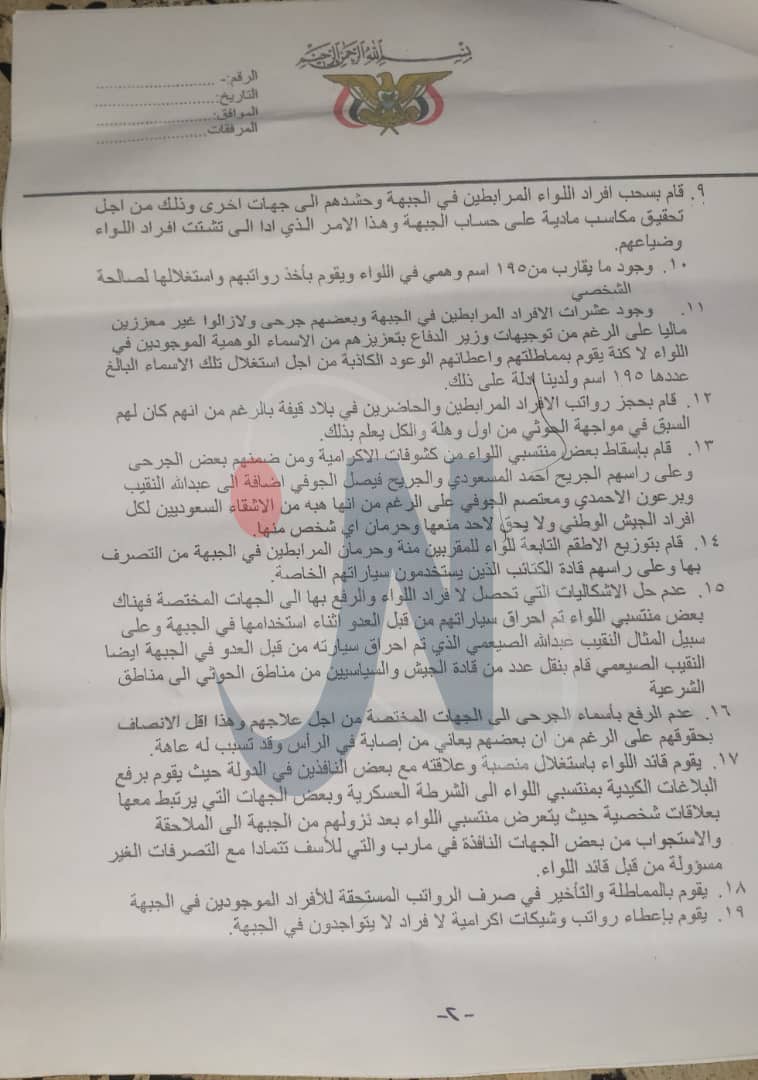 بسم الله الرحمن الرحيم
الرقم:- ........................
التاريخ: ........................
الموافق: ........................
المرفقات ........................
٩. قام بسحب افراد اللواء المرابطين في الجبهة وحشدهم الى جهات اخرى وذلك من اجل
تحقيق مكاسب مادية على حساب الجبهة وهذا الامر الذي ادا الى تشتت افراد اللواء
وضياعهم.
١٠. وجود ما يقارب من١٩٥ اسم وهمي في اللواء ويقوم بأخذ رواتبهم واستغلالها لصالحة
الشخصي
١١. وجود عشرات الافراد المرابطين في الجبهة وبعضهم جرحى ولازالوا غير معززين
ماليا على الرغم من توجيهات وزير الدفاع بتعزيزهم من الاسماء الوهمية الموجودين في
اللواء لا كنة يقوم بمماطلتهم واعطائهم الوعود الكاذبة من اجل استغلال تلك الاسماء البالغ
عددها ١٩٥ اسم ولدينا ادلة على ذلك.
١٢. قام بحجز رواتب الافراد المرابطين والحاضرين في بلاد قيفة بالرغم من انهم كان لهم
السبق في مواجهة الحوثي من اول وهلة والكل يعلم بذلك.
١٣. قام بإسقاط بعض منتسبي اللواء من كشوفات الاكرامية ومن ضمنهم بعض الجرحى
وعلى راسهم الجريح احمد المسعودي والجريح فيصل الجوفي اضافة الى عبدالله النقيب
وبرعون الاحمدي ومعتصم الجوفي على الرغم من انها هبه من الاشقاء السعوديين لكل
افراد الجيش الوطني ولا يحق لاحد منعها وحرمان اي شخص منها.
١٤. قام بتوزيع الاطقم التابعة للواء للمقربين منة وحرمان المرابطين في الجبهة من التصرف
بها وعلى راسهم قادة الكتائب الذين يستخدمون سياراتهم الخاصة.
١٥. عدم حل الاشكاليات التي تحصل لا فراد اللواء والرفع بها الى الجهات المختصة فهناك
بعض منتسبي اللواء تم احراق سياراتهم من قبل العدو اثناء استخدامها في الجبهة وعلى
سبيل المثال النقيب عبدالله الصيعمي الذي تم احراق سيارته من قبل العدو في الجبهة ايضا
النقيب الصيعمي قام بنقل عدد من قادة الجيش والسياسيين من مناطق الحوثي الى مناطق
الشرعية
١٦. عدم الرفع بأسماء الجرحى الى الجهات المختصة من اجل علاجهم وهذا اقل الانصاف
بحقوقهم على الرغم من ان بعضهم يعاني من إصابة في الرأس وقد تسبب له عاهة.
١٧. يقوم قائد اللواء باستغلال منصبة وعلاقته مع بعض النافذين في الدولة حيث يقوم برفع
البلاغات الكيدية بمنتسبي اللواء الى الشرطة العسكرية وبعض الجهات التي يرتبط معها
بعلاقات شخصية حيث يتعرض منتسبي اللواء بعد نزولهم من الجبهة الى الملاحقة
والاستجواب من بعض الجهات النافذة في مارب والتي للأسف تتمادا مع التصرفات الغير
مسؤولة من قبل قائد اللواء.
١٨. يقوم بالمماطلة والتأخير في صرف الرواتب المستحقة للأفراد الموجودين في الجبهة
١٩. يقوم بإعطاء رواتب وشيكات اكرامية لا فراد لا يتواجدون في الجبهة.
-٢-